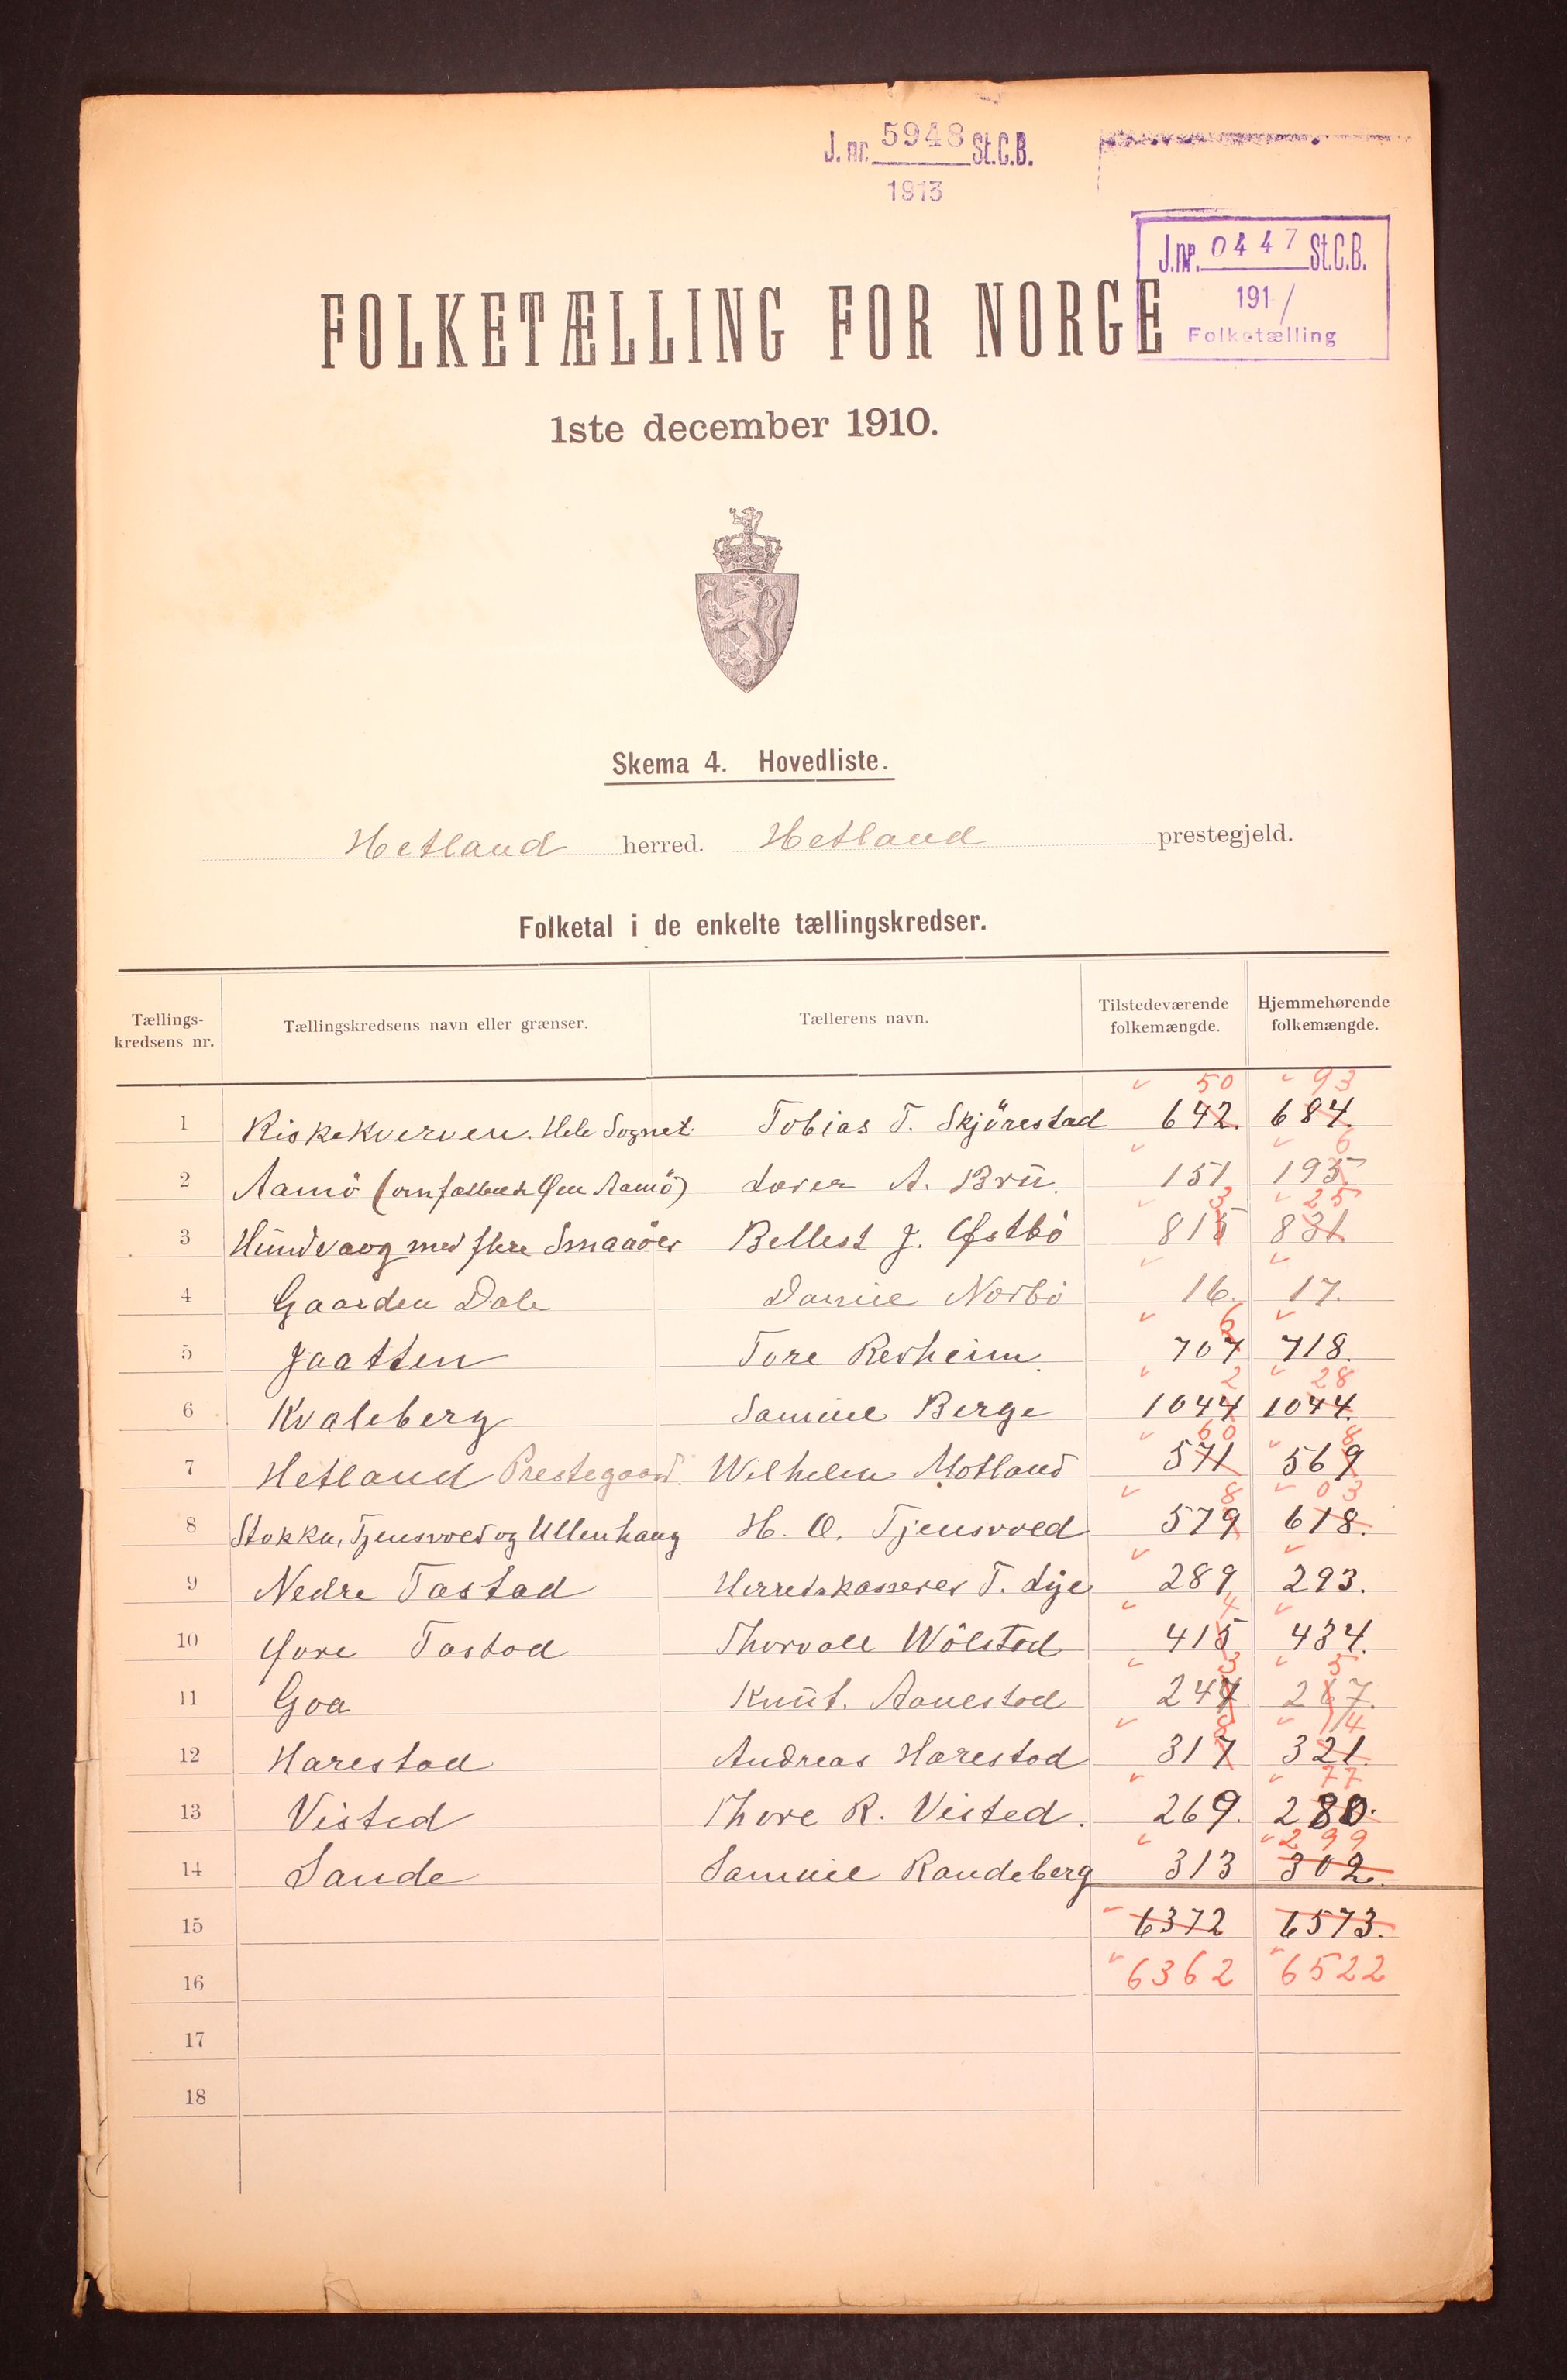 J. nr. 5948 St.C.B.
1913
J.nr. 0447 St.C.B.
191/
Folketælling
FOLKETÆLLING FOR NORGE
1ste december 1910.
Skema 4. Hovedliste.
Hetland herred. Hetland prestegjeld.
Folketal i de enkelte tællingskredser.
Tællings-kredsens nr. Tællingskredsens navn eller grænser. Tællerens navn. Tilstedeværende folkemængde. Hjemmehørende folkemængde.
50 93
1 Riskekverven. Hele Sognet. Tobias T. Skjörestad 642. 684.
6
2 Aamö (omfattende Öen Aamö) A. Brü. 151 195
3 25
3 Hundvaag med flere Smaaöer Bellest J. Østbö 815 831
4 Gaarden Dale Daniel Norbö 16. 17.
6
5 Jaatten Tore Revheim. 707 718.
2 28
6 Kvaleberg Samuel Berge 1044 1044.
60 8
7 Hetland Prestegaard. Wilhelm Motland 571 569
8 03
8 Stokka, Tjensvold og Ullenhaug H. O. Tjensvold 579 618.
9 Nedre Tastad Herredskasserer T. Lye 289 293.
4
10 Øvre Tastad Thorvald Wölstad 415 434.
3 5
11 Goa Knut. Aanestad 247 267.
8 14
12 Harestad Andreas Harestad 317 321.
77
13 Visted Thore R. Visted. 269. 280.
299
14 Sande Samuel Randeberg 313 302.
15 6372 6573.
16 6362 6522
17
18